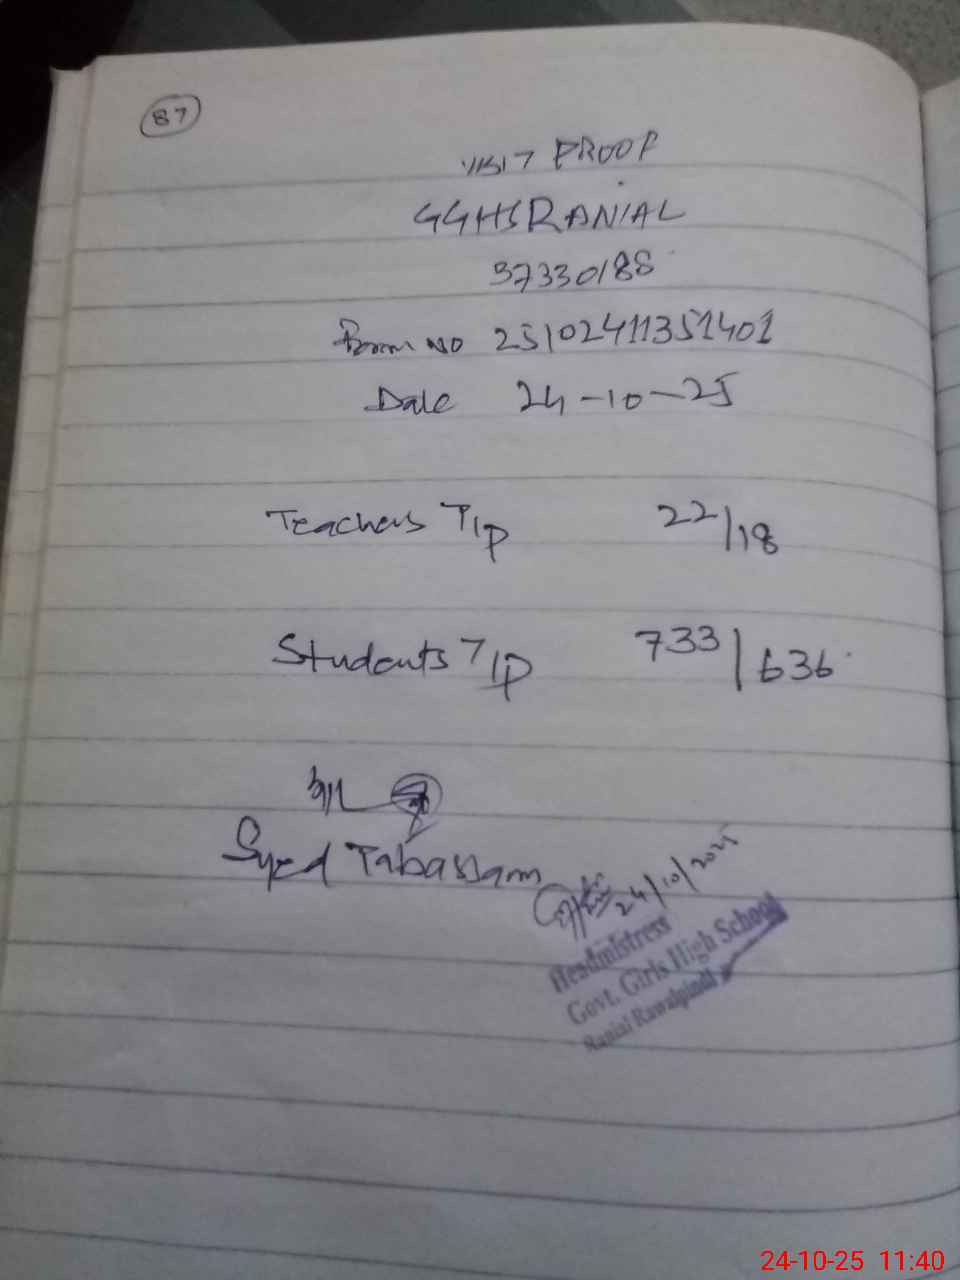 87
VISIT PROOF
GGHS RANIAL
37330188
Form NO 25102411351401
Date 24-10-25
Teachers T/P 22/18
Students T/P 733/636
Syed Tabassam
24/10/2025
Headmistress
Govt. Girls High School
Ranial Rawalpindi
24-10-25 11:40